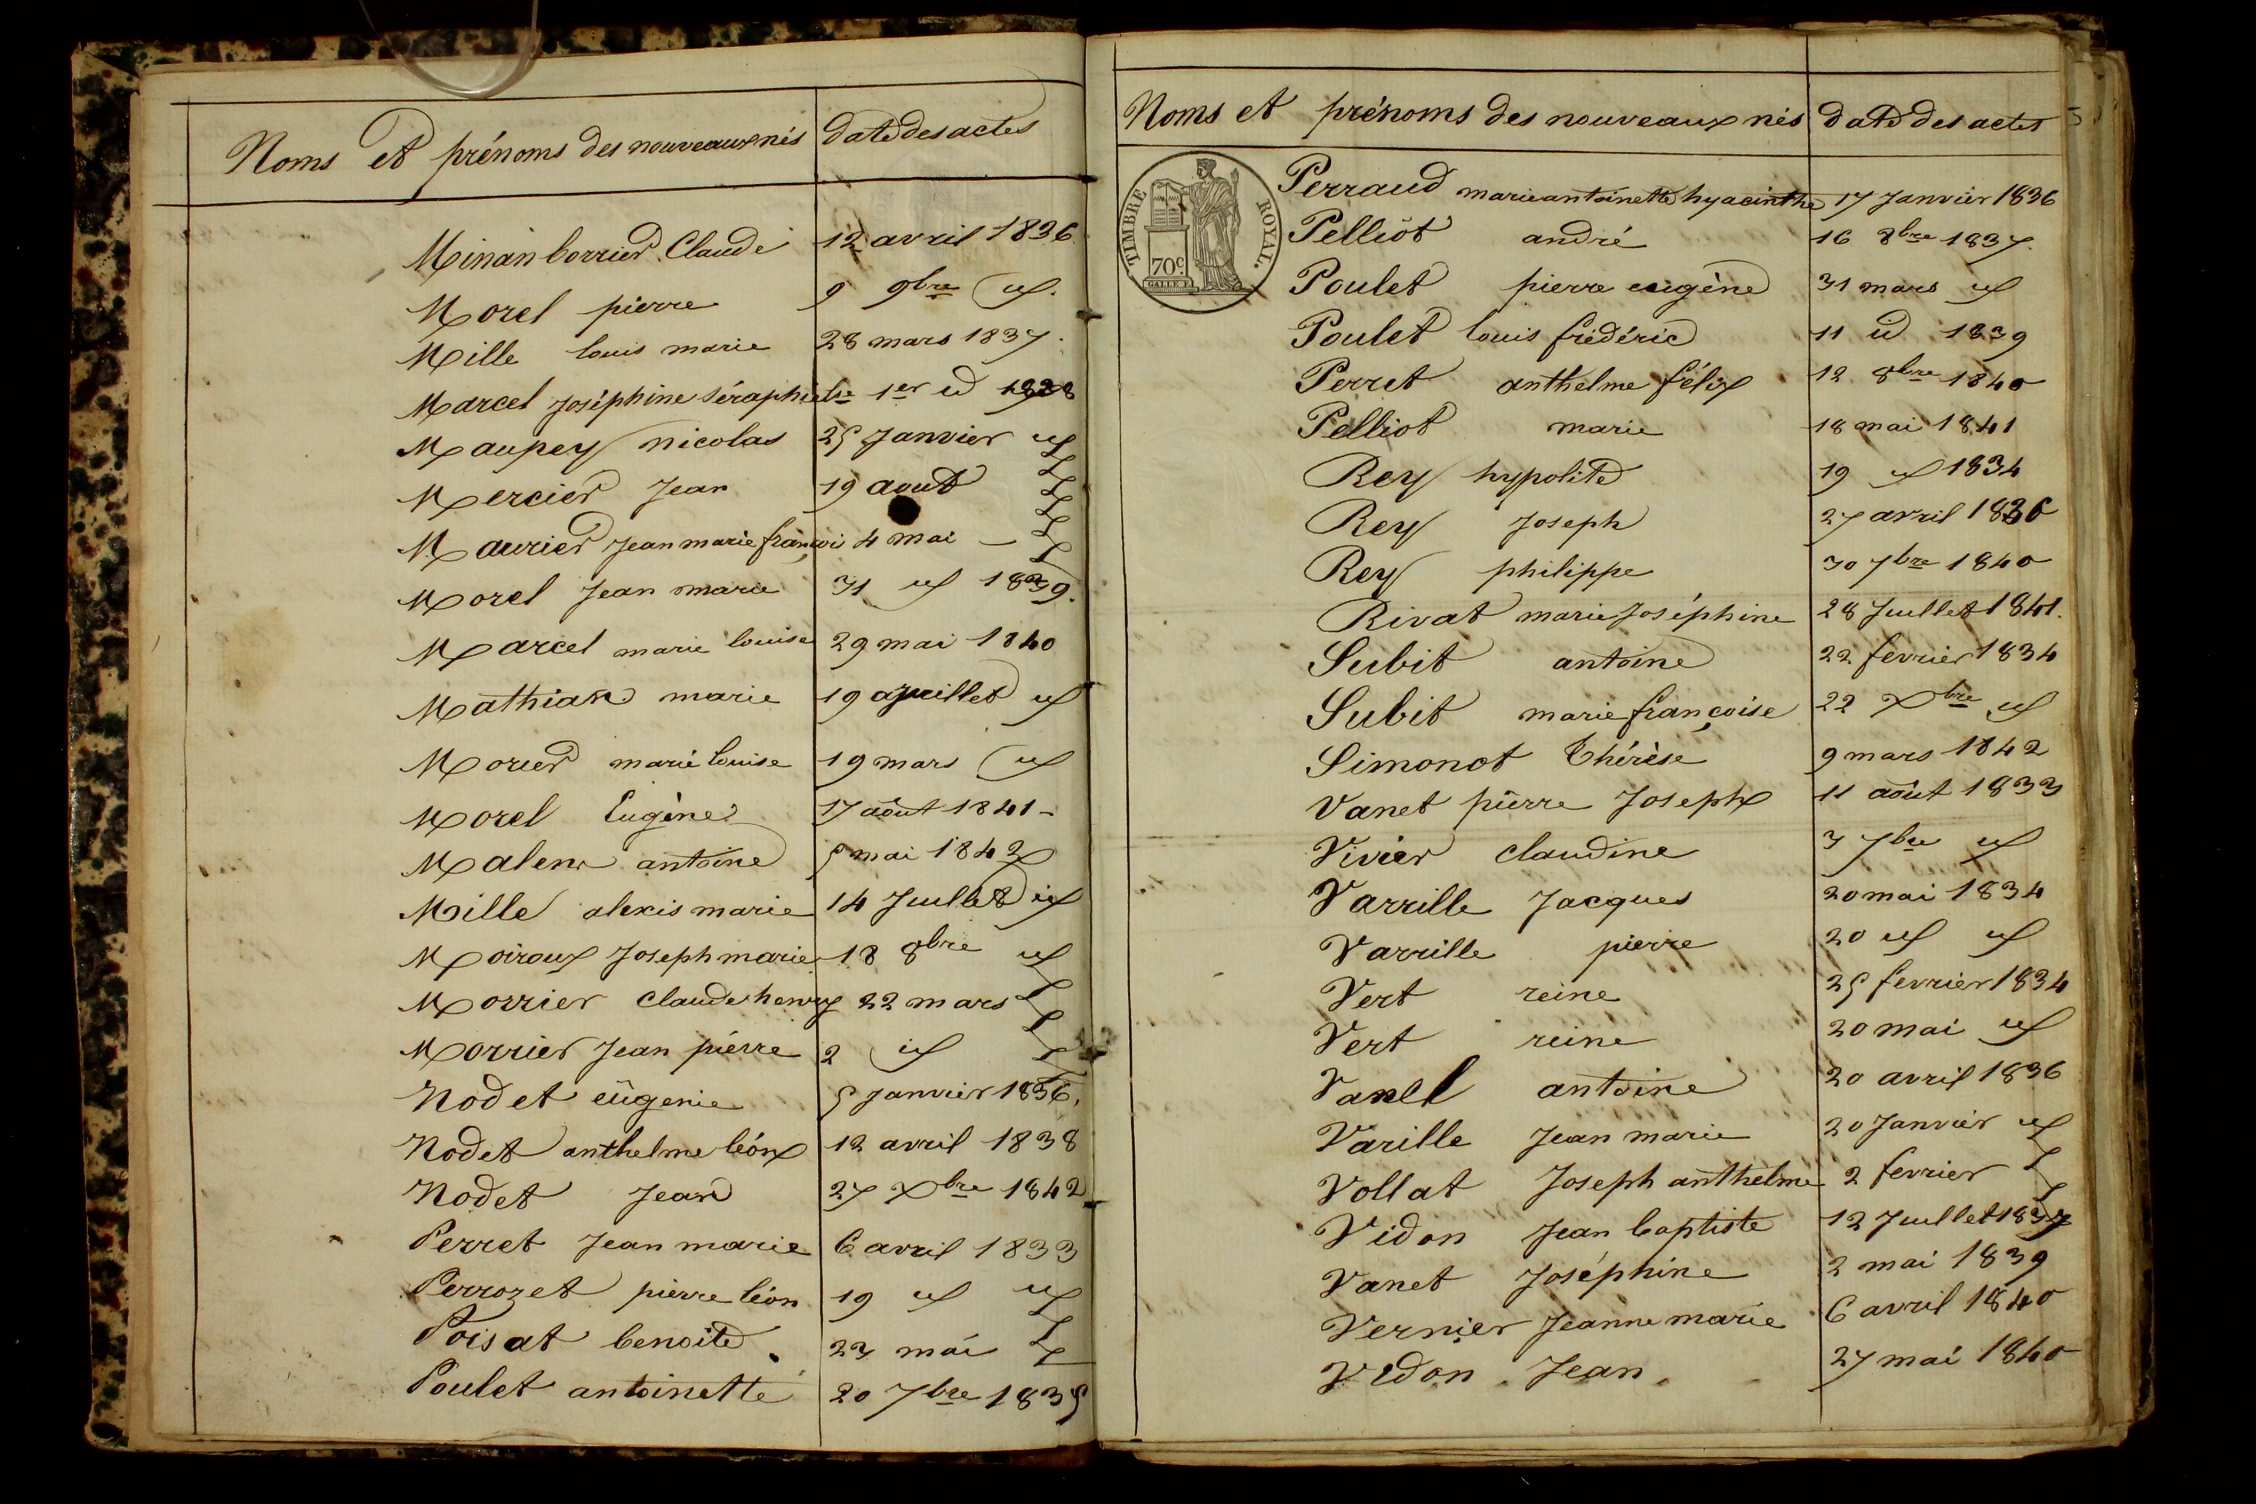 Noms et prénoms des nouveaux nés date des actes
Minanborrier Claude 12 avril 1836
Morel pierre 9 9bre id.
Mille louis marie 28 mars 1837.
Marcel Joséphine séraphie 1er id 1838
Maupey nicolas 25 Janvier id
Mercier Jean 19 aout
Maurier Jean marie françois 4 mai —
Morel Jean marie 31 id 1839.
Marcel marie louise 29 mai 1840
Mathian marie 19 juillet id
Morier marie louise 19 mars id
Morel Eugène 17 août 1841 -
antoine 5 mai 1842
Mille alexis marie 14 Juillet id
Moiroux Joseph marie 18 8bre id
Morrier claude henry 22 mars
Morrier Jean pierre 2 id
Nodet eûgenie 5 Janvier 1836,
Nodet anthelme léon 12 avril 1838
Nodet Jean 27 Xbre 1842
Perret Jean marie 6 avril 1833
Perrozet pierre léon 19 id id
Poisat benoite 23 mai
Poulet antoinette 20 7bre 1835
Noms et prénoms des nouveaux nés date des actes
TIMBRE ROYAL.
70c
Perraud marie antoinette hyacinthe 17 Janvier 1836
Pelliot andré 16 8bre 1837.
Poulet pierre eugène 31 mars id
Poulet louis frédéric 11 id 1839
Perret anthelme félix 12 8bre 1840
Pelliot marie 18 mai 1841
Rey hypolite 19 id 1834
Rey Joseph 27 avril 1836
Rey philippe 30 7bre 1840
Rivat marie Joséphine 28 Juillet 1841.
Subit antoine 22 fevrier 1834
Subit marie françoise 22 Xbre id
Simonot Thérèse 9 mars 1842
Vanet pierre Joseph 11 août 1833
Vivier claudine 3 7bre id
Varrille Jacques 20 mai 1834
Varrille pierre 20 id id
Vert reine 25 fevrier 1834
Vert reine 20 mai id
antoine 20 avril 1836
Varille Jean marie 20 Janvier id
Vollat Joseph anthelme 2 fevrier
Vidon Jean baptiste 12 Juillet 1837
Vanet Joséphine 2 mai 1839
Vernier Jeanne marie 6 avril 1840
Vidon Jean 27 mai 1840